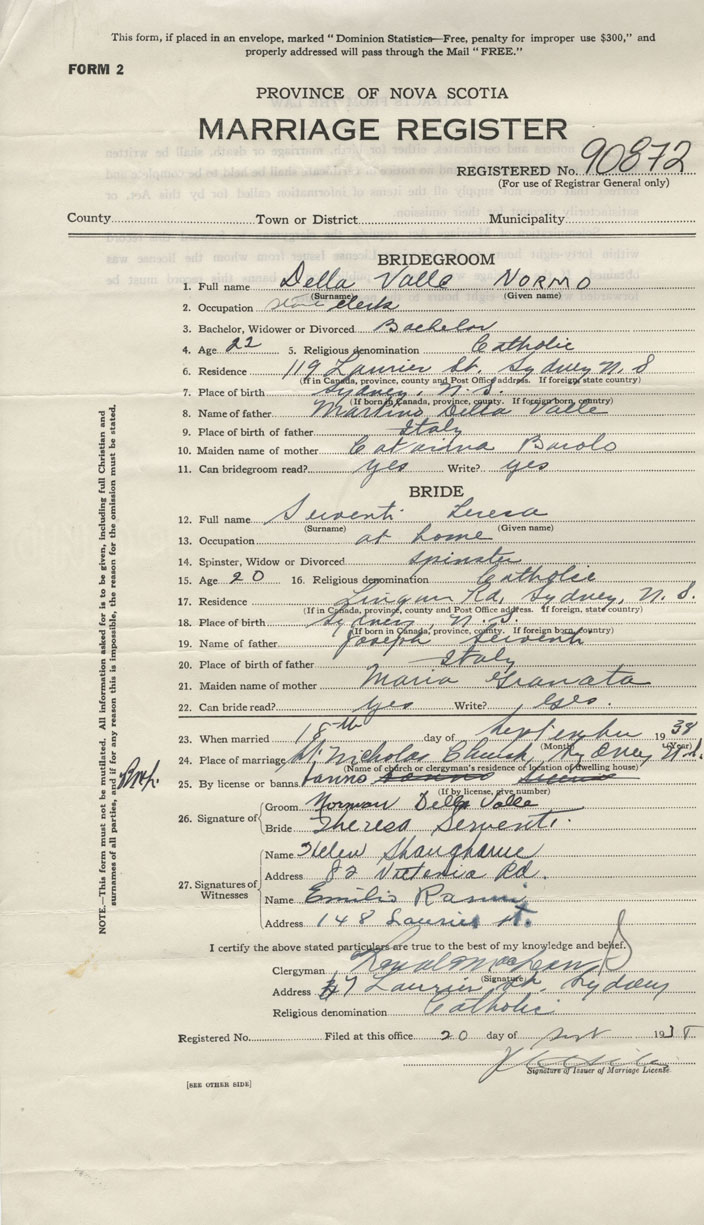 This form, if placed in an envelope, marked "Dominion Statistics—Free, penalty for improper use $300," and
properly addressed will pass through the Mail "FREE."
FORM 2
PROVINCE OF NOVA SCOTIA
MARRIAGE REGISTER
REGISTERED No. 90872
(For use of Registrar General only)
County Town or District Municipality
BRIDEGROOM
1. Full name Della Valle NORMO
(Surname) (Given name)
2. Occupation clerk
3. Bachelor, Widower or Divorced Bachelor
4. Age 22 5. Religious denomination Catholic
6. Residence 119 Laurier St. Sydney N. S
(If in Canada, province, county and Post Office address. If foreign, state country)
7. Place of birth Sydney, N. S.
(If born in Canada, province, county. If foreign born, country)
8. Name of father Martino Della Valle
9. Place of birth of father Italy
10. Maiden name of mother Catarina Barolo
11. Can bridegroom read? yes Write? yes
BRIDE
12. Full name Serventi Teresa
(Surname) (Given name)
13. Occupation at home
14. Spinster, Widow or Divorced spinster
15. Age 20 16. Religious denomination Catholic
17. Residence Lingan Rd, Sydney, N. S.
(If in Canada, province, county and Post Office address. If foreign, state country)
18. Place of birth Sydney, N. S.
(If born in Canada, province, county. If foreign born, country)
19. Name of father Joseph Serventi
20. Place of birth of father Italy
21. Maiden name of mother Maria Granata
22. Can bride read? yes Write? yes.
23. When married 18th day of September 1938
(Month) (Year)
24. Place of marriage St. Nicholas Church, Sydney N.S.
(Name of church or clergyman's residence or location of dwelling house)
25. By license or banns banns
(If by license, give number)
26. Signature of Groom Norman Della Valle
Bride Theresa Serventi.
27. Signatures of Witnesses Name Helen
Address 82 Victoria Rd.
Name Emilio
Address 148 Laurier St.
I certify the above stated particulars are true to the best of my knowledge and belief.
Clergyman
(Signature)
Address 47 Laurier St, Sydney
Religious denomination Catholic
Registered No. Filed at this office 20 day of Sept 1938
Signature of Issuer of Marriage License
[SEE OTHER SIDE]
NOTE.—This form must not be mutilated. All information asked for is to be given, including full Christian and
surnames of all parties, and if for any reason this is impossible, the reason for the omission must be stated.